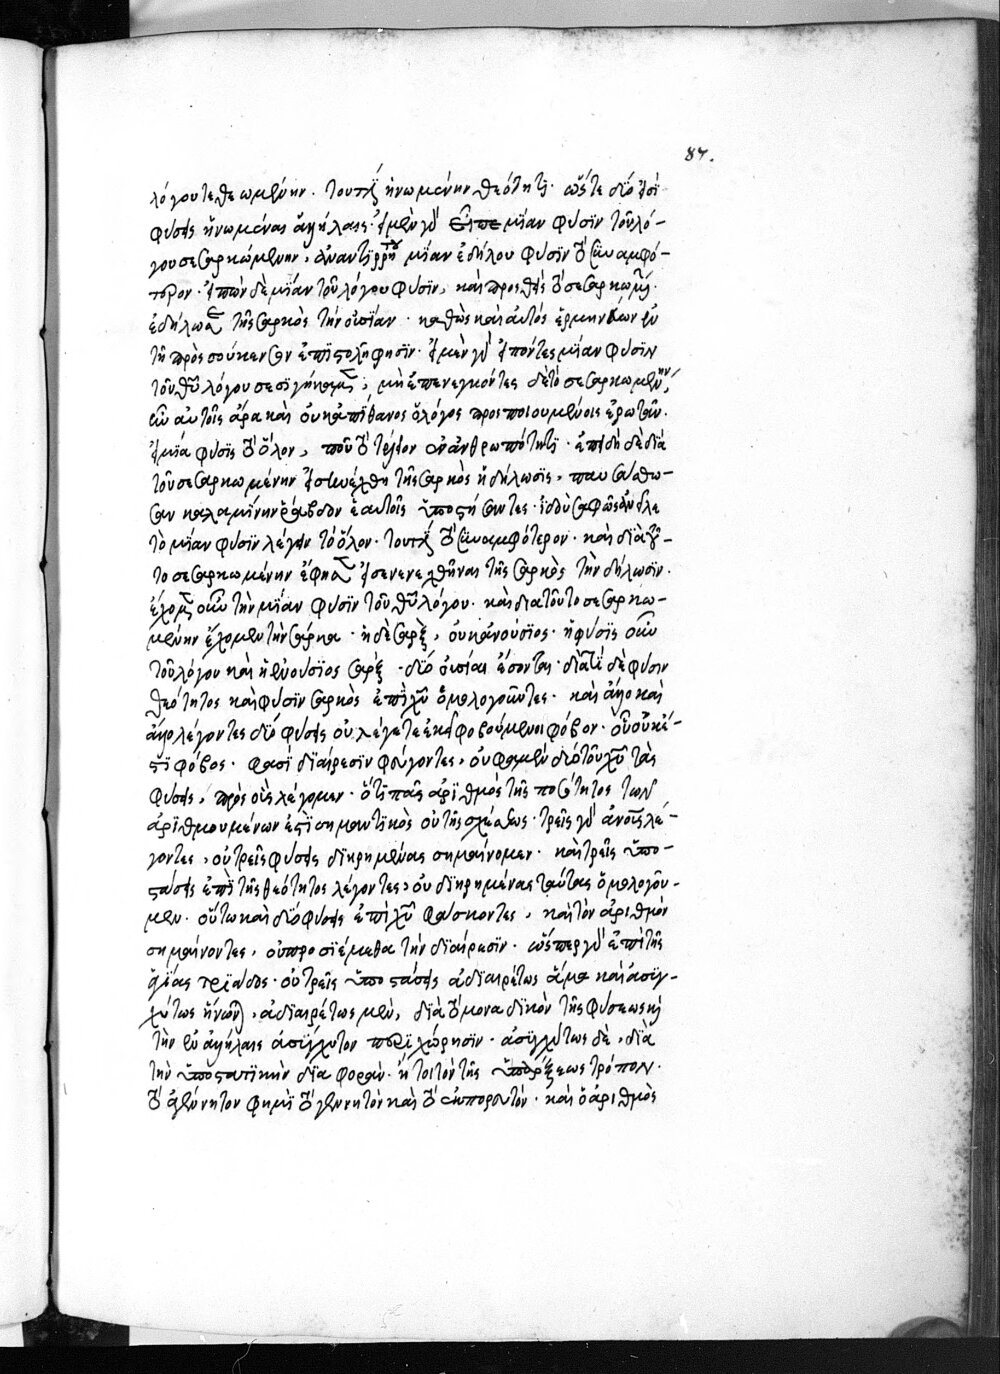 87.
λόγου τεθεωμένην. τουτέστι ἡνωμένην θεότητι. ὥστε δύο εἰσὶ
φύσεις ἡνωμέναι ἀλλήλαις. εἰ μὲν γὰρ εἶπε μίαν φύσιν τοῦ λό-
γου σεσαρκωμένην, ἀναντιρρήτου μίαν ἐδήλου φύσιν τὸ συναμφό-
τερον. εἰπὼν δὲ μίαν τοῦ λόγου φύσιν, καὶ προσθεὶς τὸ σεσαρκωμένη.
ἐδήλωσε τῆς σαρκὸς τὴν οὐσίαν. καθὼς καὶ αὐτὸς ἑρμηνεύων ἐν
τῇ πρὸς σούκενσον ἐπιστολῇ φησίν. εἰ μὲν γὰρ εἰπόντες μίαν φύσιν
τοῦ θυ λόγου σεσιγήκαμεν, μὴ ἐπενεγκόντες δὲ τὸ σεσαρκωμένην,
ἦν αὐτοῖς ἄρα καὶ οὐκ ἀπίθανος ὁ λόγος προσποιουμένοις ἐρωτᾶν.
εἰ μία φύσις τὸ ὅλον, ποῦ τὸ τέλειον ἐν ἀνθρωπότητι. ἐπειδὴ δὲ διὰ
τοῦ σεσαρκωμένην εἰσηνέχθη τῆς σαρκὸς ἡ δήλωσις, παυσάσθω-
σαν καλαμίνην ῥάβδον ἑαυτοῖς ὑποστήσαντες. ἰδοὺ σαφῶς
τὸ μίαν φύσιν λέγειν τὸ ὅλον. τουτέστι τὸ συναμφότερον. καὶ διὰ τοῦ-
το σεσαρκωμένην ἔφησε εἰσενενεχθῆναι τῆς σαρκὸς τὴν δήλωσιν.
ἔχομεν οὖν τὴν μίαν φύσιν τοῦ θυ λόγου. καὶ διὰ τοῦτο σεσαρκω-
μένην ἔχομεν τὴν σάρκα. ἡ δὲ σὰρξ, οὐκ ἀνούσιος. ἡ φύσις οὖν
τοῦ λόγου καὶ ἡ ἐνούσιος σάρξ. δύο οὐσίαι ἔσονται. διατί δὲ φύσιν
θεότητος καὶ φύσιν σαρκὸς ἐπὶ χυ ὁμολογοῦντες. καὶ ἄλλο καὶ
ἄλλο λέγοντες δύο φύσεις οὐ λέγετε ἐκεῖ φοβούμενοι φόβον. οὗ οὐκ ἔ-
στι φόβος. φασὶ διαίρεσιν φεύγοντες, οὐ φαμὲν δύο τοῦ χυ τὰς
φύσεις, πρὸς οὓς λέγομεν. ὅτι πᾶς ἀριθμὸς τῆς ποσότητος τῶν
ἀριθμουμένων ἐστὶ σημαντικὸς οὐ τῆς σχέσεως. τρεῖς γὰρ ἀνοῖς λέ-
γοντες, οὐ τρεῖς φύσεις διῃρημένας σημαίνομεν. καὶ τρεῖς ὑπο-
στάσεις ἐπὶ τῆς θεότητος λέγοντες, οὐ διῃρημένας ταύτας ὁμολογοῦ-
μεν. οὕτω καὶ δύο φύσεις ἐπὶ χυ φάσκοντες, καὶ τὸν ἀριθμὸν
σημαίνοντες, οὐ προσιέμεθα τὴν διαίρεσιν. ὥσπερ γὰρ ἐπὶ τῆς
ἁγίας τριάδος. οὐ τρεῖς ὑποστάσεις ἀδιαιρέτως ἅμα καὶ ἀσυγ-
χύτως ἥνωται, ἀδιαιρέτως μὲν, διὰ τὸ μοναδικὸν τῆς φύσεως καὶ
τὴν ἐν ἀλλήλαις ἀσύγχυτον περιχώρησιν. ἀσυγχύτως δὲ, διὰ
τὴν ὑποστατικὴν διαφοράν. ἤτοι τὸν τῆς ὑπάρξεως τρόπον.
τὸ ἀγέννητον φημὶ τὸ γεννητὸν καὶ τὸ ἐκπορευτόν. καὶ ὁ ἀριθμὸς